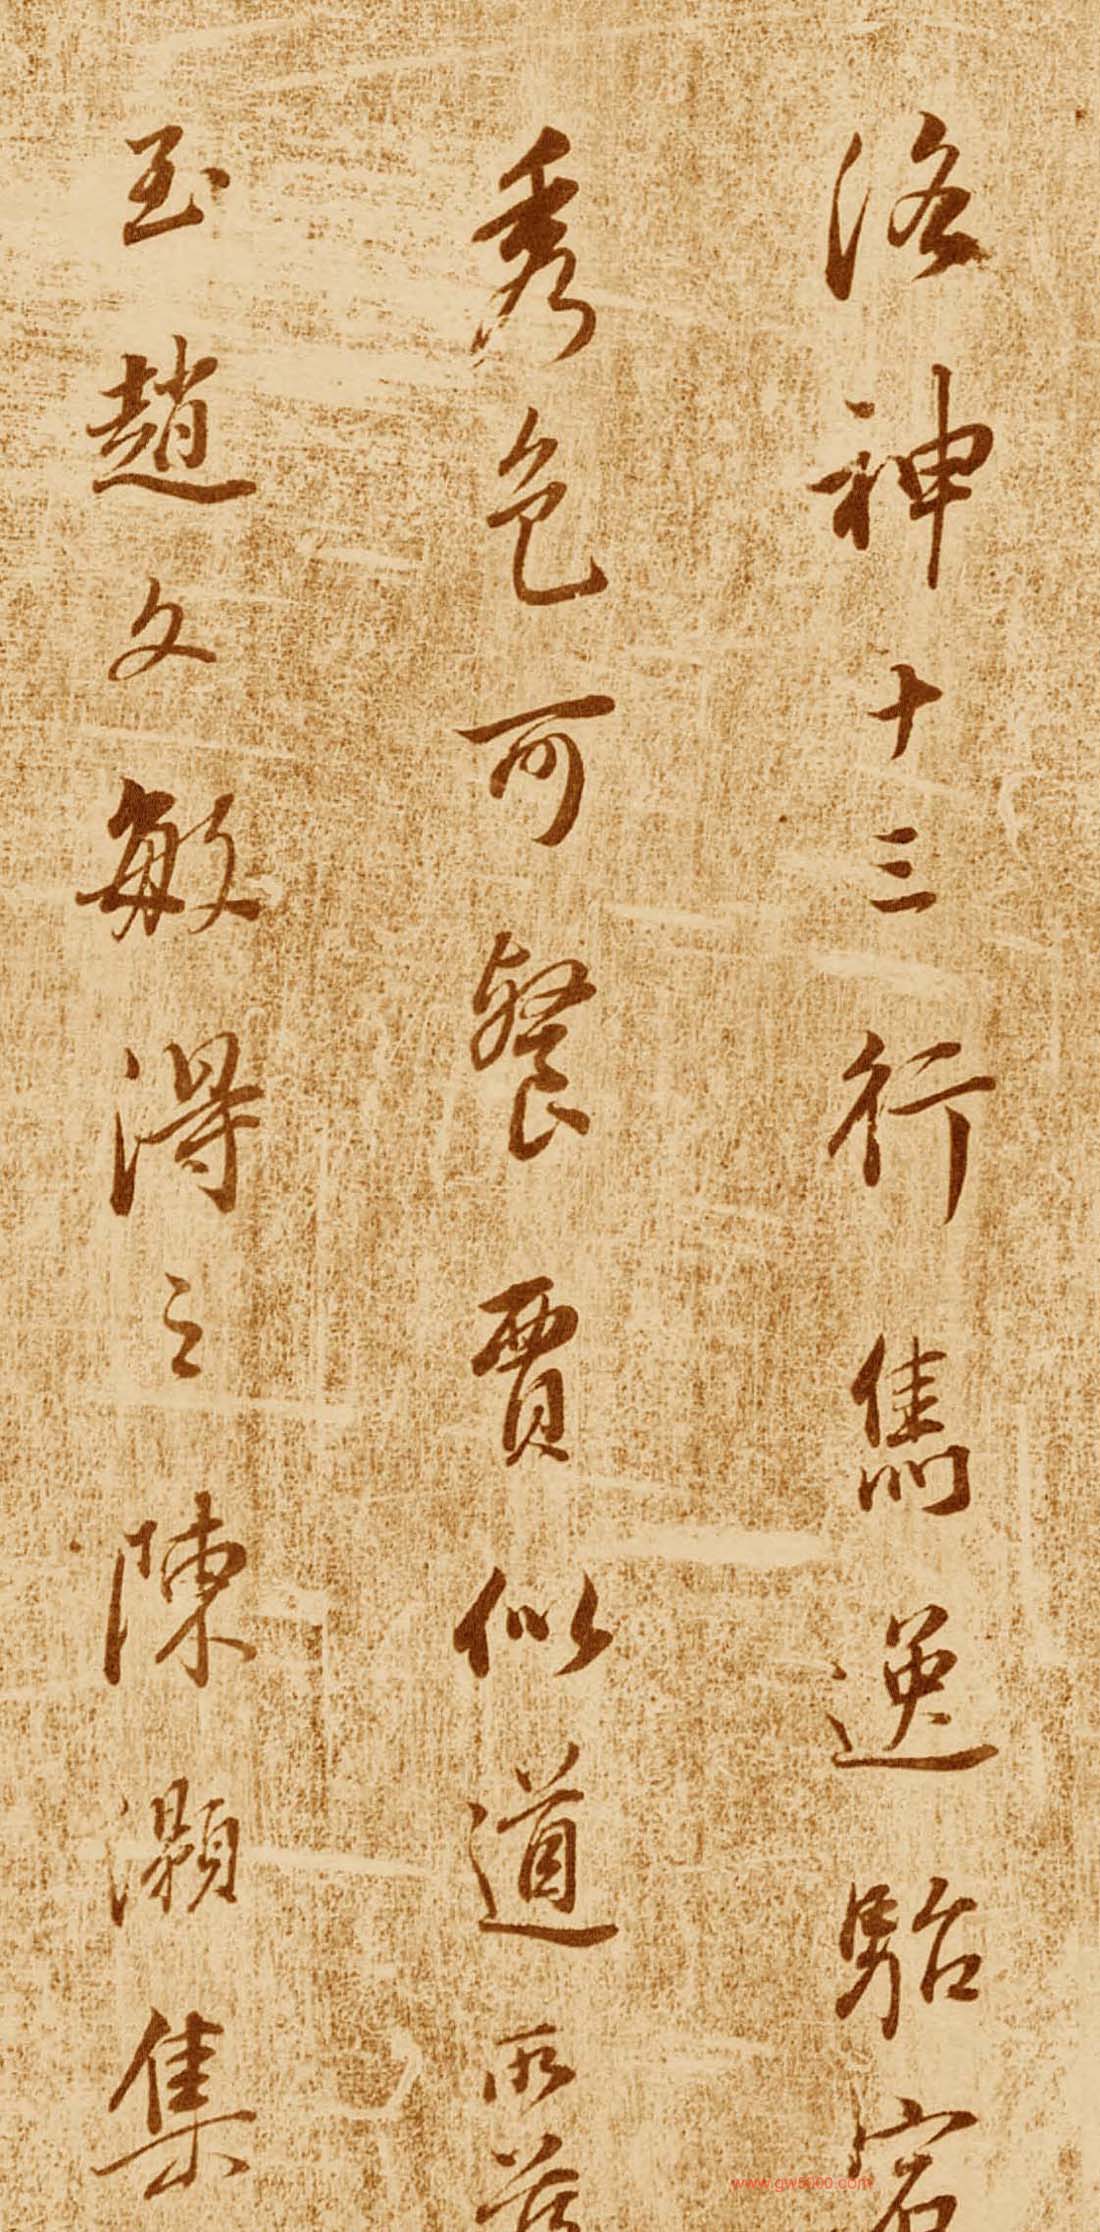 洛神十三行雋逸駘宕
秀色可餐賈似道所
至趙文敏得之陳灝集
www.gw5000.com